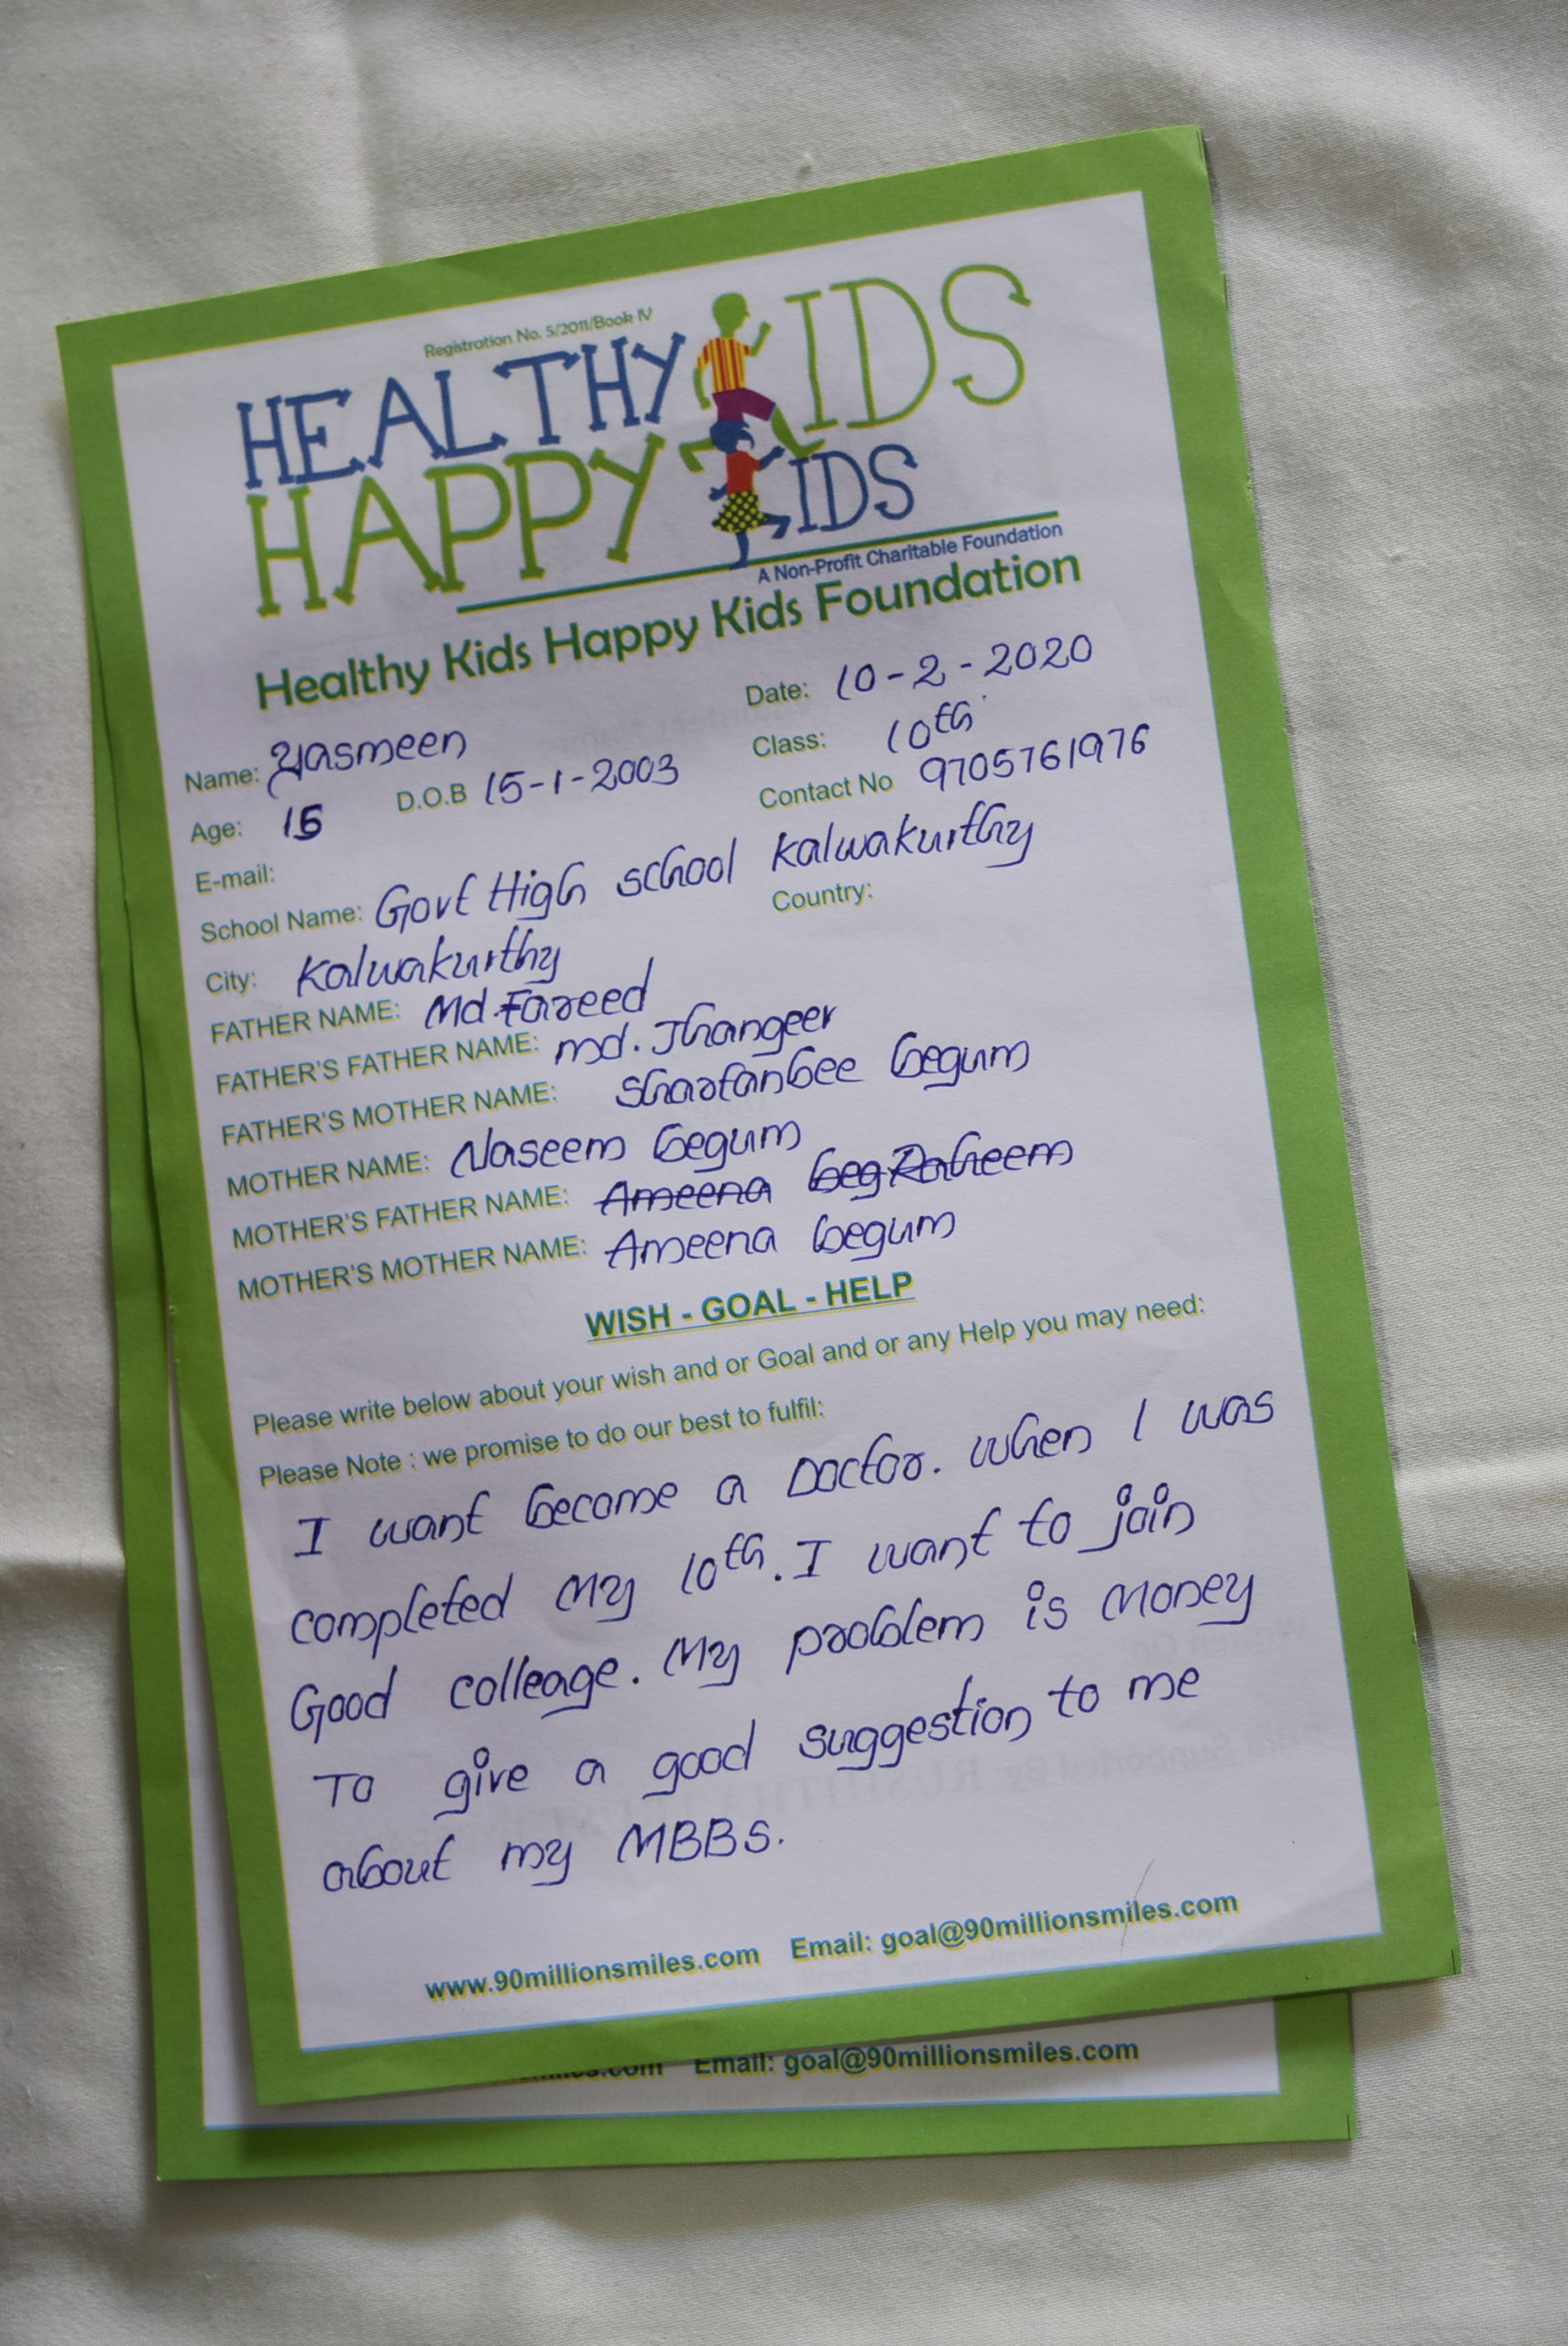 Registration No. 5/2011/Book IV
HEALTHY KIDS
HAPPY KIDS
A Non-Profit Charitable Foundation
Healthy Kids Happy Kids Foundation
Date: 10-2-2020
Name: Yasmeen
Class: 10th
Age: 15 D.O.B 15-1-2003
Contact No 9705761976
E-mail:
School Name: Govt High school kalwakurthy
City: Kalwakurthy Country:
FATHER NAME: Md. Fareed
FATHER'S FATHER NAME: md. Jhangeer
FATHER'S MOTHER NAME: Sharfanbee begum
MOTHER NAME: Naseem begum
MOTHER'S FATHER NAME: Ameena beg Raheem
MOTHER'S MOTHER NAME: Ameena begum
WISH - GOAL - HELP
Please write below about your wish and or Goal and or any Help you may need:
Please Note : we promise to do our best to fulfil:
I want become a Doctor. when I was
completed my 10th. I want to join
Good colleage. My problem is money
To give a good suggestion to me
about my MBBS.
www.90millionsmiles.com Email: goal@90millionsmiles.com
Email: goal@90millionsmiles.com